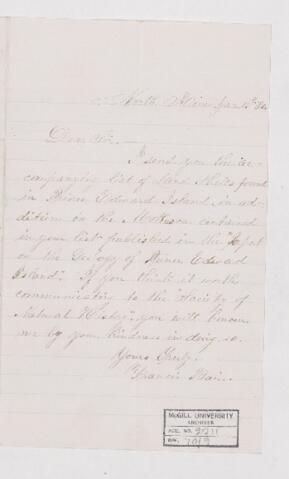 North River Jan 15th
Dear Sir.
I send you the ac-
companying list of Land Shells found
in Prince Edward Island in ad-
dition to the Mollusca contained
in your list published in the "Report
on the Geology of Prince Edward
Island". If you think it worth
communicating to the Society of
Natural History you will honour
me by your kindness in doing so.
Yours truly
Francis Bain.
McGILL UNIVERSITY
ARCHIVES
ACC. NO. 2211
REF.